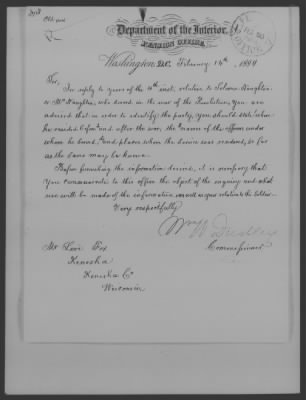 Department of the Interior,
PENSION OFFICE,
Washington D.C. February 14th, 1884
Sir,
In reply to yours of the 4th inst. relative to Solomon Naughton
or McNaughton, who served in the war of the Revolution, you are
advised that in order to identify the party, you should state where
he resided before and after the war, the names of the officers under
whom he served, and places where the service was rendered, so far
as the same may be known.
Before furnishing the information desired, it is necessary that
you communicate to this office the object of the inquiry and what
use will be made of the information
Very respectfully
Wm W Dudley
Commissioner
Mr Levi Fox
Kenosha
Kenosha Co
Wisconsin